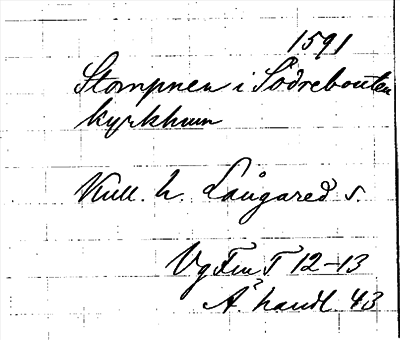 1591
Stompnen i Södrebouten
kyrkhuun
Kull. h. Långared s.
Vg Fm T 12-13
Ä handl. 43